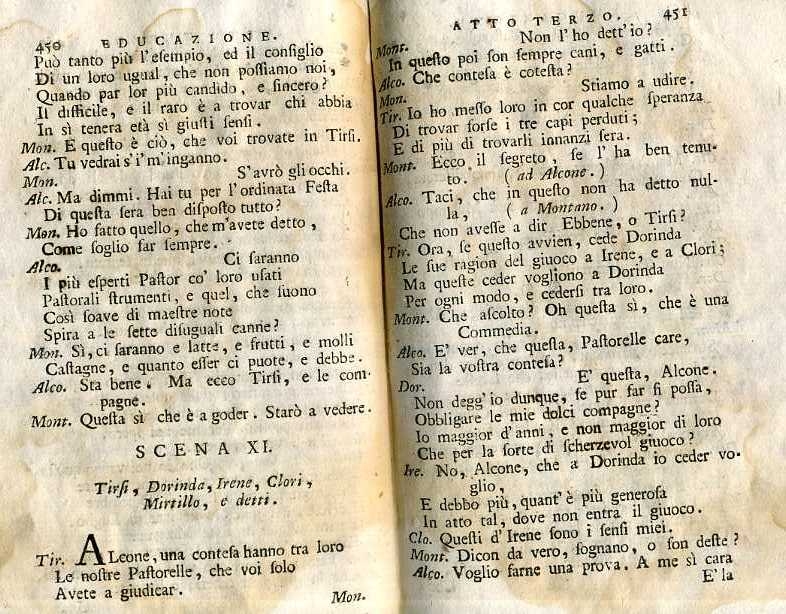 450 EDUCAZIONE.
Può tanto più l'eſempio, ed il conſiglio
Di un loro ugual, che non poſſiamo noi,
Quando par lor più candido, e ſincero?
Il difficile, e il raro è a trovar chi abbia
In sì tenera età sì giuſti ſenſi.
Mon. E queſto è ciò, che voi trovate in Tirſi.
Alc. Tu vedrai s'i'm'inganno.
Mon. S'avrò gli occhi.
Alc. Ma dimmi. Hai tu per l'ordinata Feſta
Di queſta ſera ben diſpoſto tutto?
Mon. Ho fatto quello, che m'avete detto,
Come ſoglio far ſempre.
Alco. Ci ſaranno
I più eſperti Paſtor co' loro uſati
Paſtorali ſtrumenti, e quel, che ſuono
Così ſoave di maeſtre note
Spira a le ſette diſuguali canne?
Mon. Sì, ci ſaranno e latte, e frutti, e molli
Caſtagne, e quanto eſſer ci puote, e debbe.
Alco. Sta bene. Ma ecco Tirſi, e le com-
pagne.
Mont. Queſta sì che è a goder. Starò a vedere.
SCENA XI.
Tirſi, Dorinda, Irene, Clori,
Mirtillo, e detti.
Tir. ALcone, una conteſa hanno tra loro
Le noſtre Paſtorelle, che voi ſolo
Avete a giudicar.
Mon.
ATTO TERZO. 451
Mont. Non l'ho dett'io?
In queſto poi ſon ſempre cani, e gatti.
Alco. Che conteſa è coteſta?
Mon. Stiamo a udire.
Tir. Io ho meſſo loro in cor qualche ſperanza
Di trovar forſe i tre capi perduti;
E di più di trovarli innanzi ſera.
Mont. Ecco il ſegreto, ſe l'ha ben tenu-
to. (ad Alcone.)
Alco. Taci, che in queſto non ha detto nul-
la, (a Montano.)
Che non aveſſe a dir. Ebbene, o Tirſi?
Tir. Ora, ſe queſto avvien, cede Dorinda
Le ſue ragion del giuoco a Irene, e a Clori;
Ma queſte ceder vogliono a Dorinda
Per ogni modo, e cederſi tra loro.
Mont. Che aſcolto? Oh queſta sì, che è una
Commedia.
Alco. E' ver, che queſta, Paſtorelle care,
Sia la voſtra conteſa?
Dor. E' queſta, Alcone.
Non degg'io dunque, ſe pur far ſi poſſa,
Obbligare le mie dolci compagne?
Io maggior d'anni, e non maggior di loro
Che per la ſorte di ſcherzevol giuoco?
Ire. No, Alcone, che a Dorinda io ceder vo-
glio,
E debbo più, quant'è più generoſa
In atto tal, dove non entra il giuoco.
Clo. Queſti d'Irene ſono i ſenſi miei.
Mont. Dicon da vero, ſognano, o ſon deſte?
Alco. Voglio farne una prova. A me sì cara
E'la